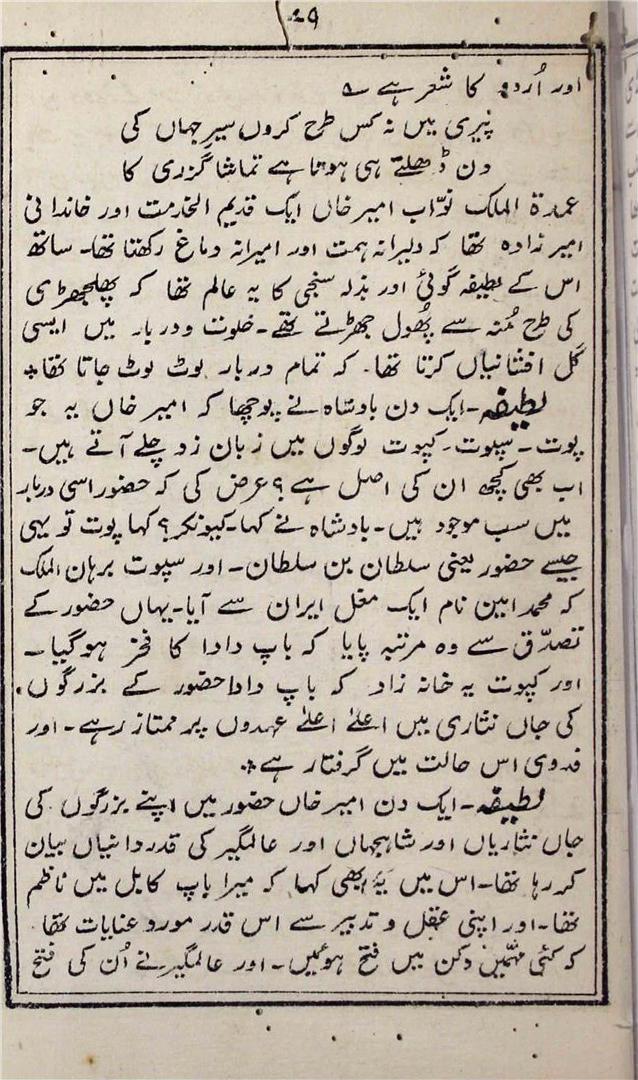 ۲۹
اور اُردو کا شعر ہے ؎
پیری میں نہ کس طرح کروں سیرِ جہاں کی
دن ڈھلتے ہی ہوتا ہے تماشا گزری کا
عمدۃ الملک نوّاب امیر خاں ایک قدیم الخدمت اور خاندانی
امیر زادہ تھا کہ دلیرانہ ہمت اور امیرانہ دماغ رکھتا تھا۔ ساتھ
اس کے لطیفہ گوئی اور بذلہ سنجی کا یہ عالم تھا کہ پھلجھڑی
کی طرح مُنہ سے پُھول جھڑتے تھے۔ خلوت و دربار میں ایسی
گل افشانیاں کرتا تھا۔ کہ تمام دربار لوٹ لوٹ جاتا تھا٭
لطیفہ۔ ایک دن بادشاہ نے پوچھا کہ امیر خاں یہ جو
پوت۔ سپوت۔ کپوت لوگوں میں زبان زد چلے آتے ہیں۔
اب بھی کچھ ان کی اصل ہے؟ عرض کی کہ حضور اسی دربار
میں سب موجود ہیں۔ بادشاہ نے کہا۔ کیونکر؟ کہا پوت تو یہی
جیسے حضور یعنی سلطان بن سلطان۔ اور سپوت برہان الملک
کہ محمد امین نام ایک مغل ایران سے آیا۔ یہاں حضور کے
تصدّق سے وہ مرتبہ پایا کہ باپ دادا کا فخر ہوگیا۔
اور کپوت یہ خانہ زاد کہ باپ دادا حضور کے بزرگوں
کی جاں نثاری میں اعلےٰ اعلےٰ عہدوں پر ممتاز رہے۔ اور
فدوی اس حالت میں گرفتار ہے٭
لطیفہ۔ ایک دن امیر خاں حضور میں اپنے بزرگوں کی
جاں نثاریاں اور شاہجہاں اور عالمگیر کی قدردانیاں بیان
کر رہا تھا۔ اس میں یہ بھی کہا کہ میرا باپ کابل میں ناظم
تھا۔ اور اپنی عقل و تدبیر سے اس قدر موردِ عنایات تھا
کہ کئی مہمّیں دکن میں فتح ہوئیں۔ اور عالمگیر نے اُن کی فتح